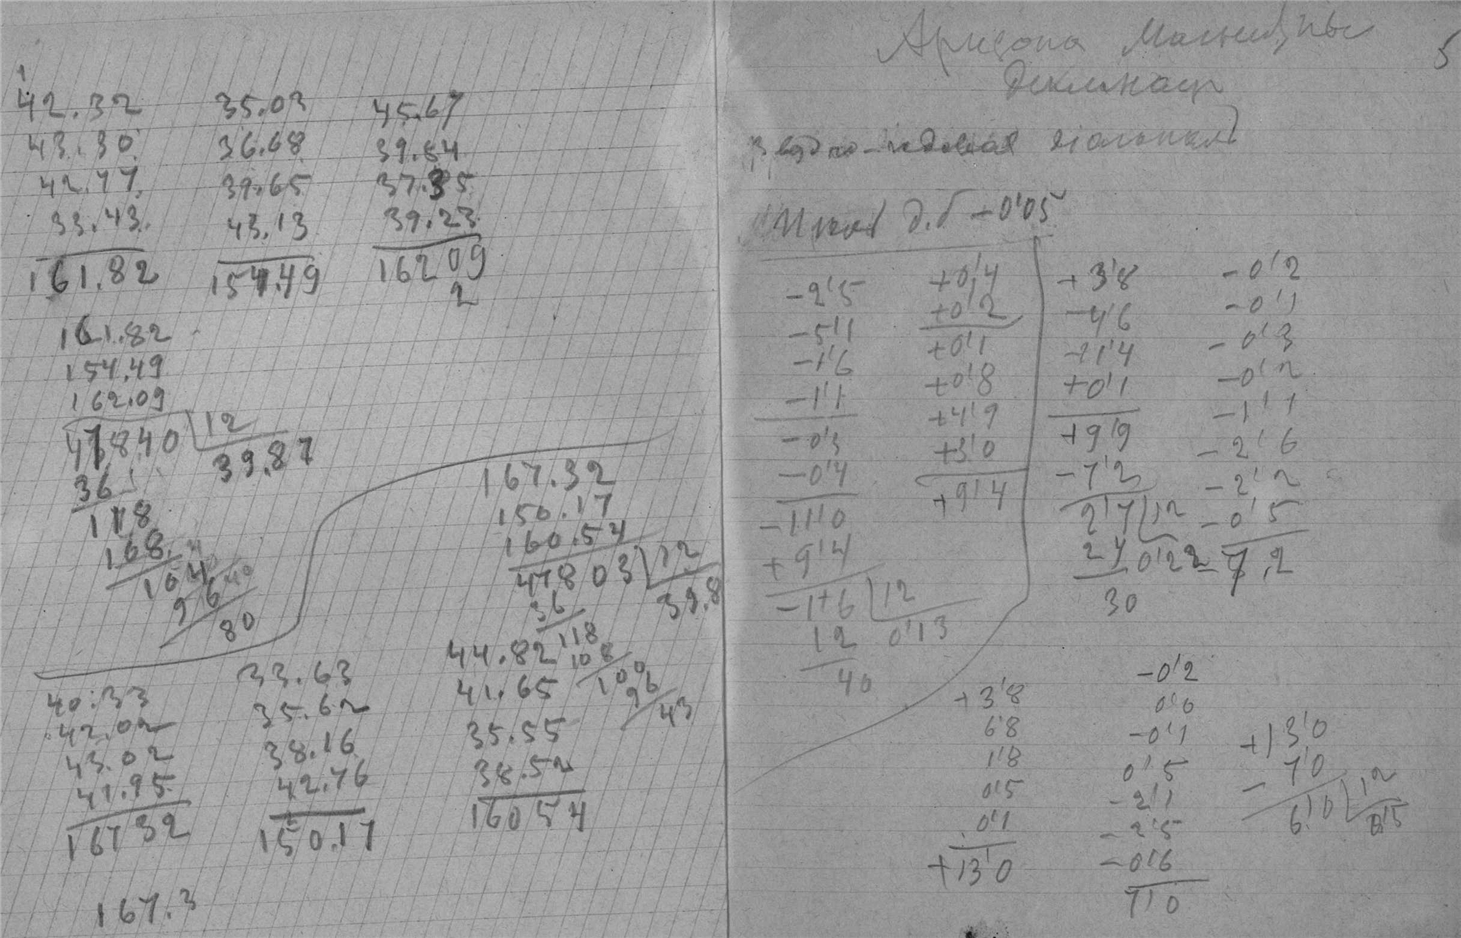 42.32 35.03 45.67
43.30 36.68 39.84
42.77 39.65 37.35
33.43 43.13 39.23
161.82 154.49 162 09
2
161.82
154.49
162.09
478.40 12
39.87
36
118
108
104
96
80
167.32
150.17
160.54
478 03 12
39.8
36
118
108
100
96
43
40.33 33.63 44.82
42.02 35.62 41.65
43.02 38.16 35.55
41.95 42.76 38.52
167 32 150.17 160 54
167.3
5
д.б -0'05
-2'5 +0'4 +3'8 -0'2
-5'1 +0'2 -4'6 -0'1
-1'6 +0'1 -0'3
-1'1 +0'8 +0'1 -0'2
-0'3 +4'9 +9'9 -1'1
-0'4 +3'0 -7'2 -2'6
-11'0 +9'4 2'7 12 -2'2
+9'4 24 0'22 -0'5
-1'6 12 30 -7,2
12 0'13
40
+3'8 -0'2
6'8 0'0 +13'0
1'8 -0'1 -7'0
0'5 0'5 6'0 12
0'1 -2'1 0'5
+13'0 -2'5
-0'6
7'0